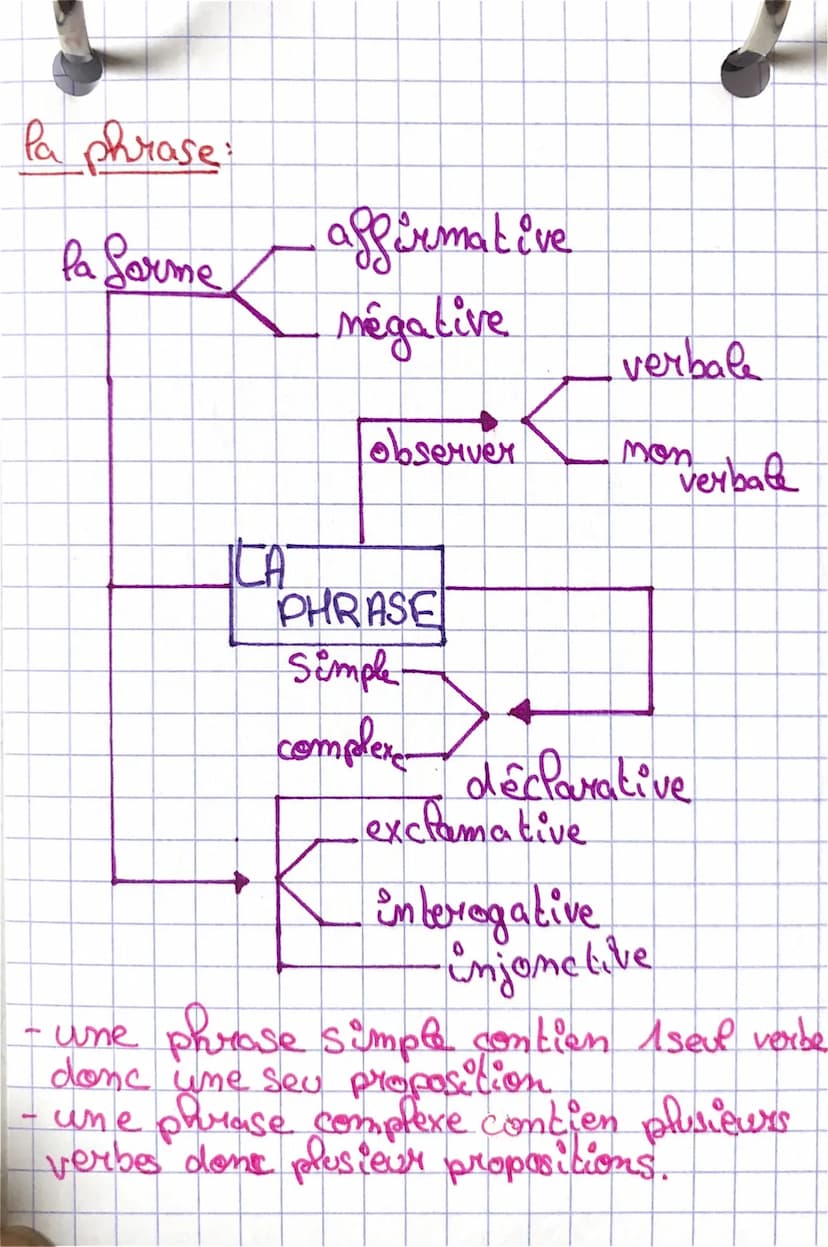 la phrase:
affirmative
la forme
négative
verbale
observer
non
verbale
LA
PHRASE
simple
complexe
déclarative
exclamative
interogative
injonctive
- une phrase simple contien 1 seul verbe
donc une seu proposition
- une phrase complexe contien plusieurs
verbes donc plusieur propositions.